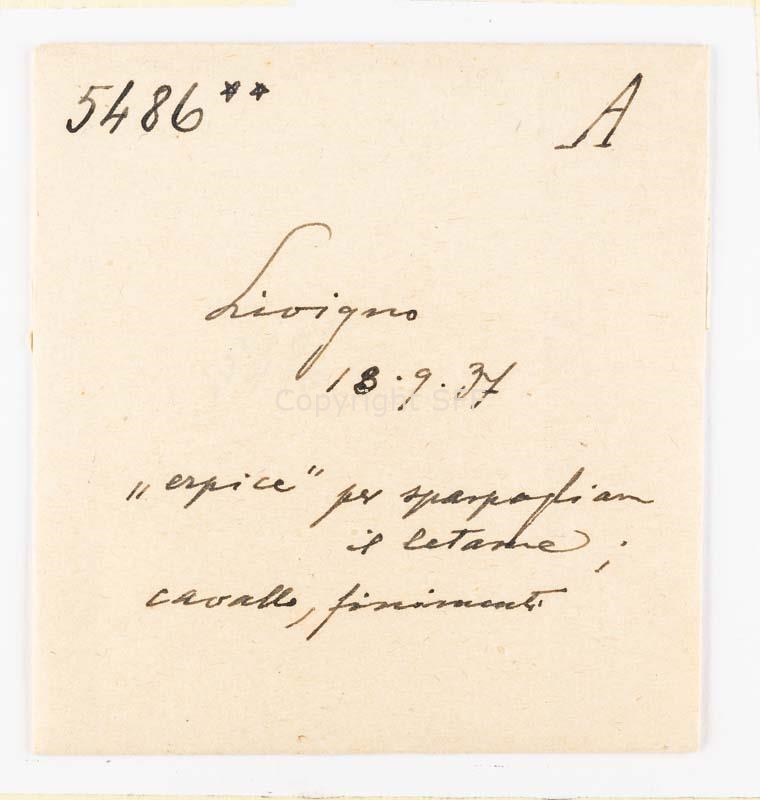 5486** A
Livigno
18.9.37
„erpice" per sparpagliare
il letame;
cavallo, finimenti